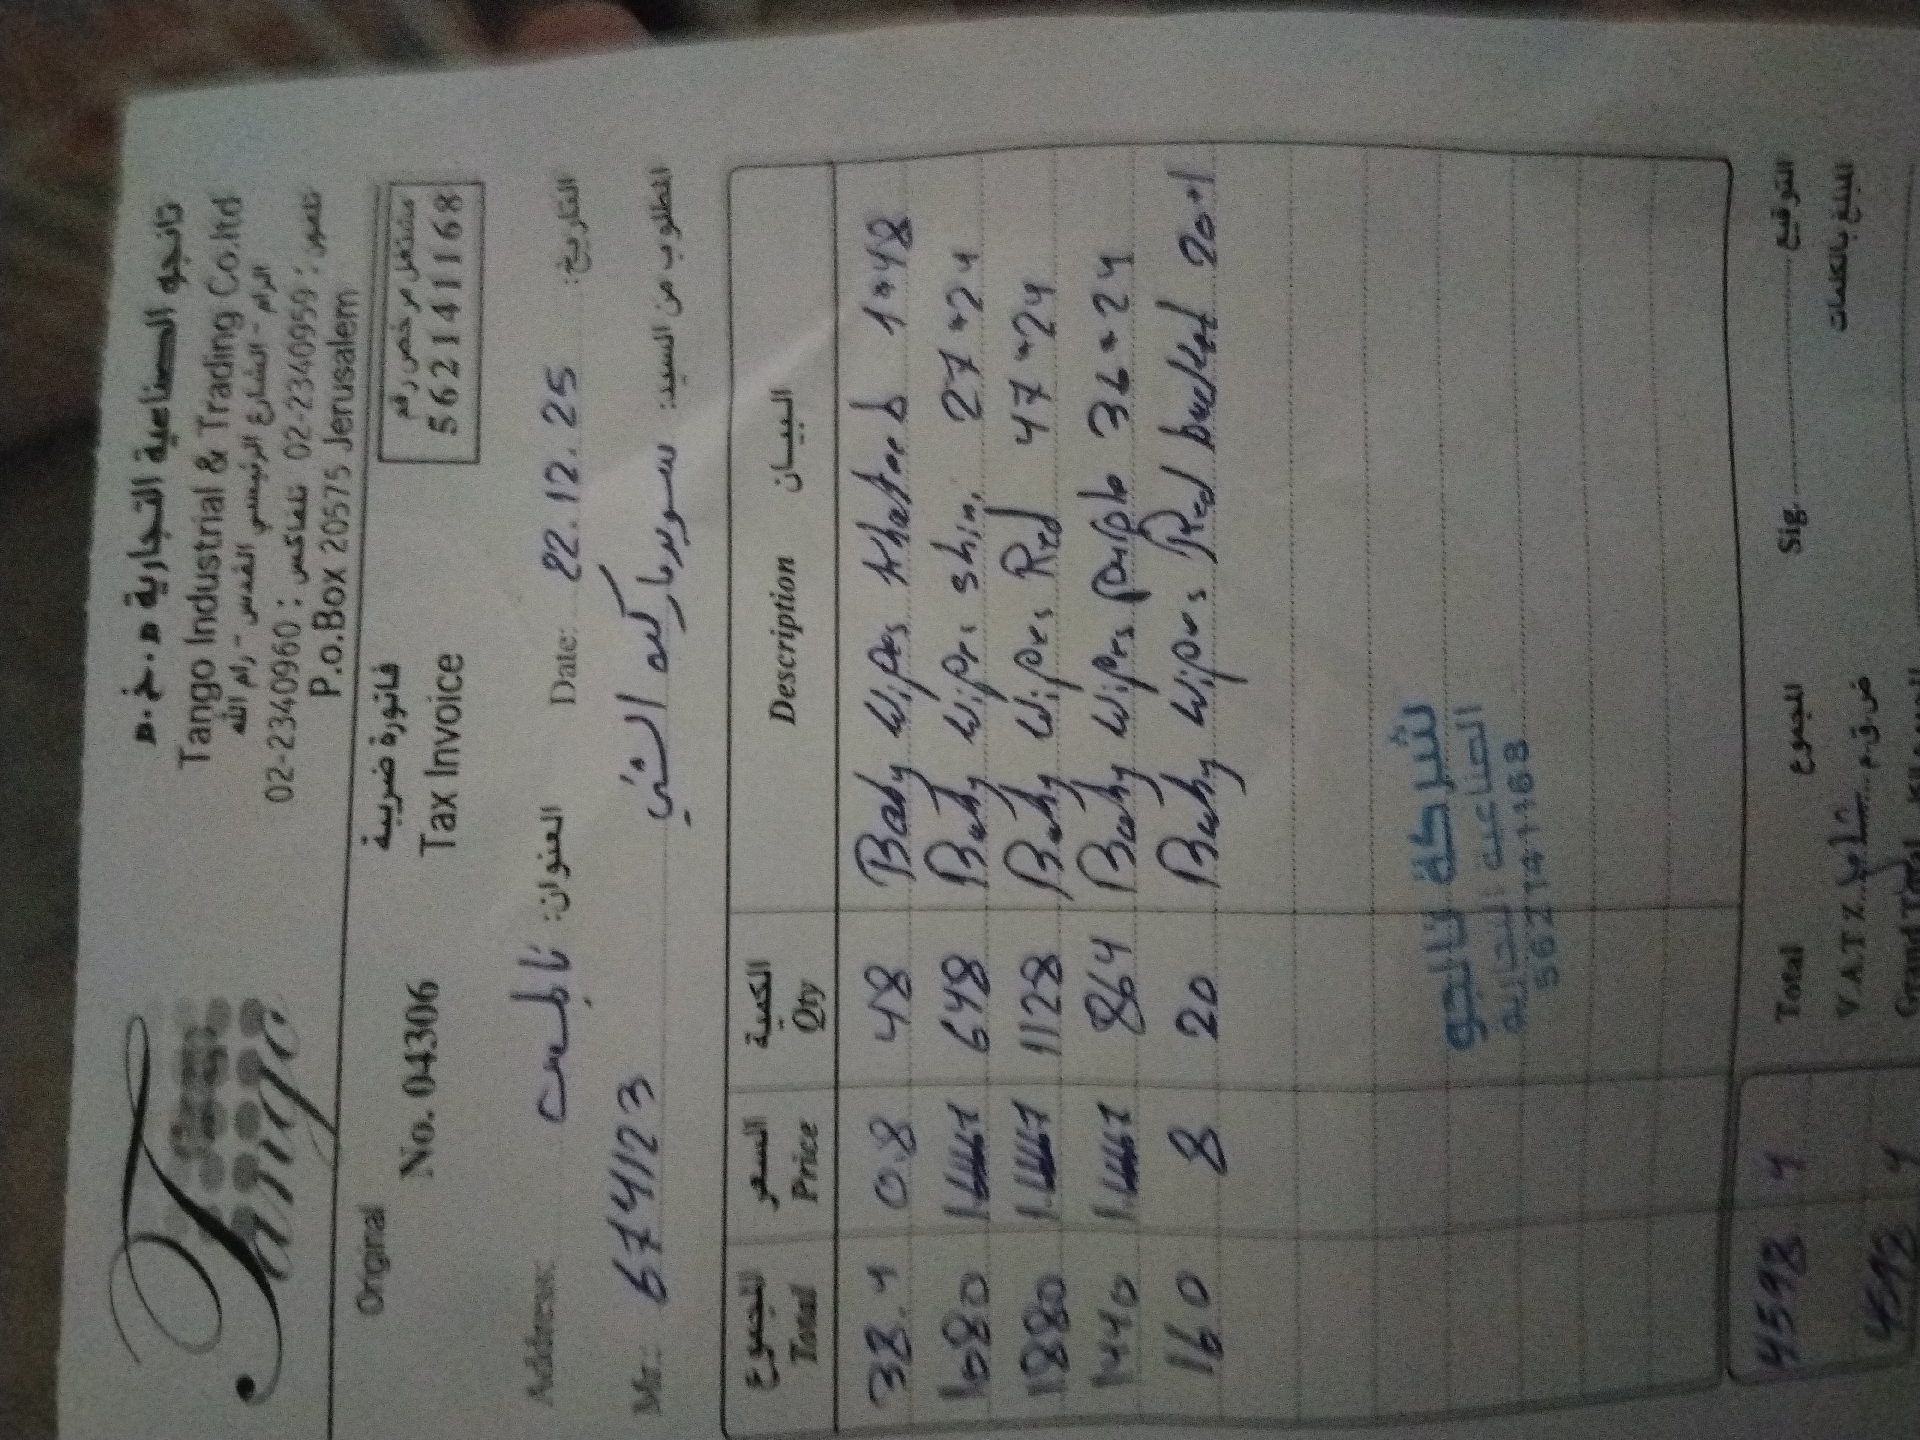 Tango
تانجو الصناعية التجارية م.خ.م
Tango Industrial & Trading Co.ltd
الرام - الشارع الرئيسي القدس - رام الله
02-2340960 : تلفاكس 02-2340959 : تلفون
P.o.Box 20575 Jerusalem
Original
فاتورة ضريبية
مشتغل مرخص رقم
No. 04306
Tax Invoice
562141168
Address: العنوان: Date: 22.12.25 التاريخ:
Mr.: 674123 سوبرماركت المطلوب من السيد:
المجموع السعر الكمية
Total Price Qty Description البيـــان
38.4 0.8 48 Baby Wipes 1*48
1080 648 Baby Wipes shin 27*24
1880 1128 Baby Wipes Red 47*24
1440 864 Baby Wipes purple 36*24
160 8 20 Baby Wipes Red bucket 20*1
شركة تانجو
الصناعية التجارية
562141168
4598.4 Total المجموع Sig. التوقيع
V.A.T ض.ق.م المبلغ بالكلمات
4598.4 Grand Total